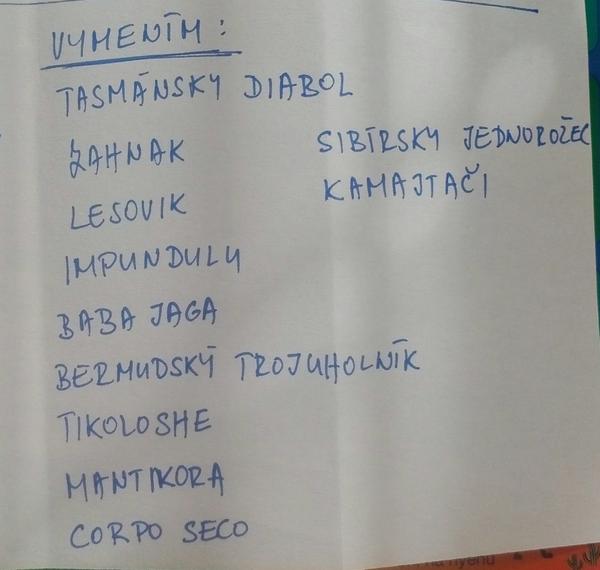 VYMENÍM:
TASMÁNSKY DIABOL
ŽAHNAK
LESOVIK
IMPUNDULU
BABA JAGA
BERMUDSKÝ TROJUHOLNÍK
TIKOLOSHE
MANTIKORA
CORPO SECO
SIBÍRSKY JEDNOROŽEC
KAMAJTAČI